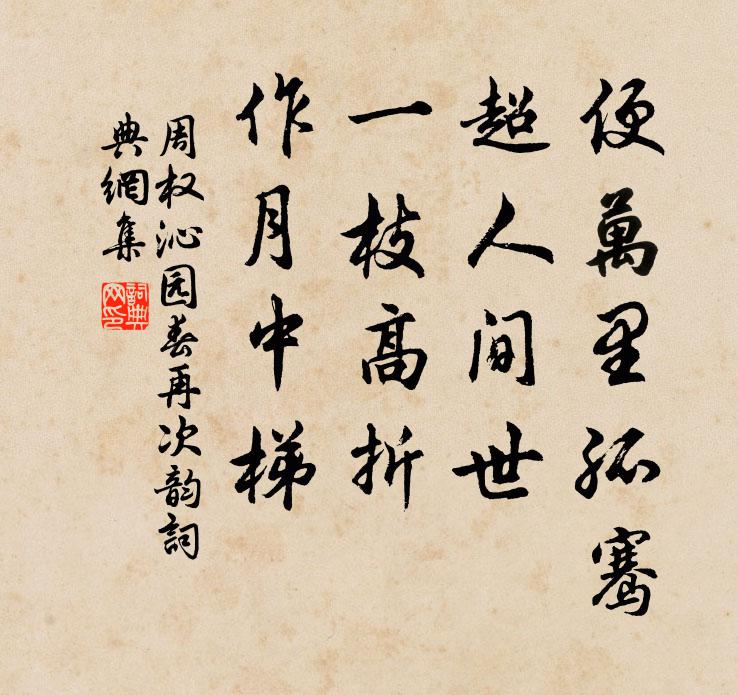 便萬里孤騫
超人間世
一枝高折
作月中梯
周权沁园春再次韵詞
典網集
詞典
网印